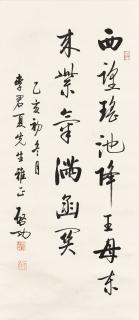 西望瑤池降王母東
来紫氣滿函關
乙亥初冬月
李君夏先生雅正
啓功